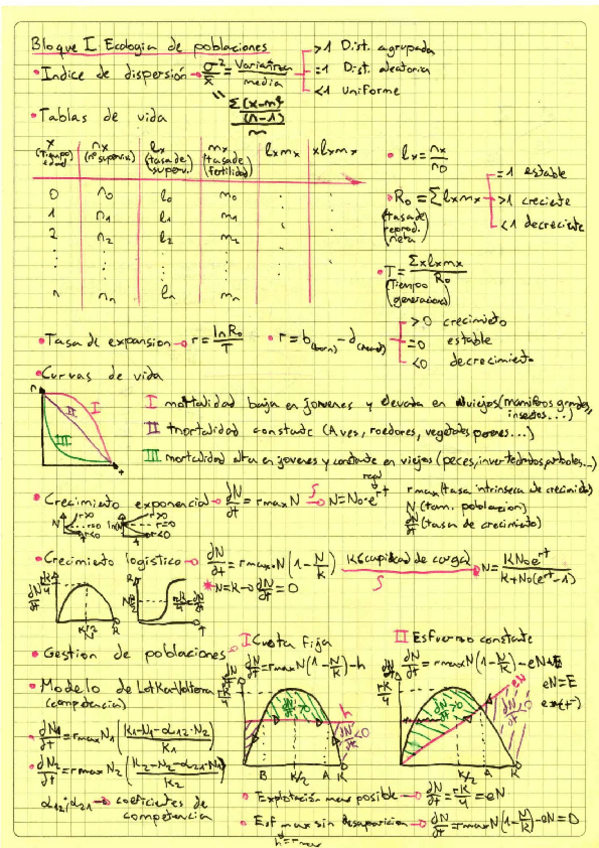 Bloque I. Ecologia de poblaciones
• Indice de dispersión → σ²/x̄ = Varianza/media
>1 Dist. agrupada
=1 Dist. aleatoria
<1 Uniforme
• Tablas de vida
x (Tiempo edad) nx lx (tasa de superv.) mx (tasa de fertilidad) lxmx xlxmx
0 n0 l0 m0
1 n1 l1 m1
2 n2 l2 m2
n nn ln mn
• lx = nx/n0
• R0 = Σlxmx
(tasa de reprod. neta)
=1 estable
>1 creciente
<1 decreciente
• T = Σxlxmx/R0
(Tiempo generacional)
• Tasa de expansion → r = lnR0/T
• r = b(born) - d(death)
>0 crecimiento
=0 estable
<0 decrecimiento
• Curvas de vida
I mortalidad baja en jovenes y elevada en viejos (mamiferos grandes, insectos...)
II mortalidad constante (Aves, roedores, vegetales perennes...)
III mortalidad alta en jovenes y constante en viejos (peces, invertebrados, arboles...)
• Crecimiento exponencial → dN/dt = rmax N ∫→ N = N0·e^rt
rmax (tasa intrinseca de crecimiento)
N (tam. poblacion)
dN/dt (tasa de crecimiento)
r>0 r=0 r<0
lnN r>0 r=0 r<0
• Crecimiento logistico → dN/dt = rmax·N(1-N/K)
K (capacidad de carga)
∫ → N = KN0e^rt/K+N0(e^rt-1)
* N=K → dN/dt = 0
• Gestion de poblaciones
I Cuota fija
dN/dt = rmax N(1-N/K)-h
II Esfuerzo constante
dN/dt = rmax N(1-N/K)-eN
eN=E
• Modelo de LotkaVolterra
(competencia)
• dN1/dt = rmax N1(K1-N1-α12·N2/K1)
• dN2/dt = rmax N2(K2-N2-α21·N1/K2)
α12; α21 → coeficientes de competencia
B K/2 A K
K/2 A K
• Explotación max posible → dN/dt = rK/4 = eN
• Esf max sin desaparicion → dN/dt = rmax N(1-N/K)-eN = 0